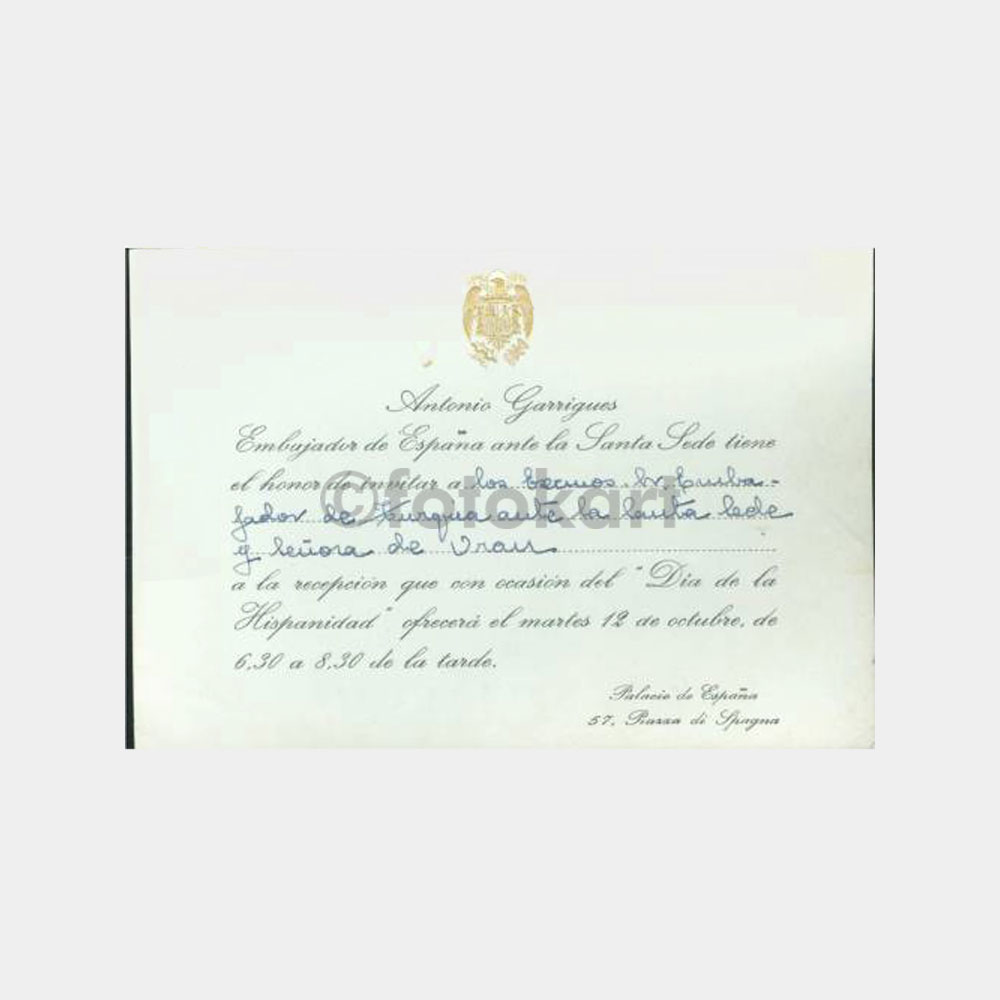 Antonio Garrigues
Embajador de España ante la Santa Sede tiene
el honor de invitar a los Excmos. Sr. Emba-
jador de Turquia ante la Santa Sede
y Señora de Uran
a la recepción que con ocasión del "Dia de la
Hispanidad" ofrecerá el martes 12 de octubre, de
6,30 a 8,30 de la tarde.
Palacio de España
57, Piazza di Spagna
©fotokart